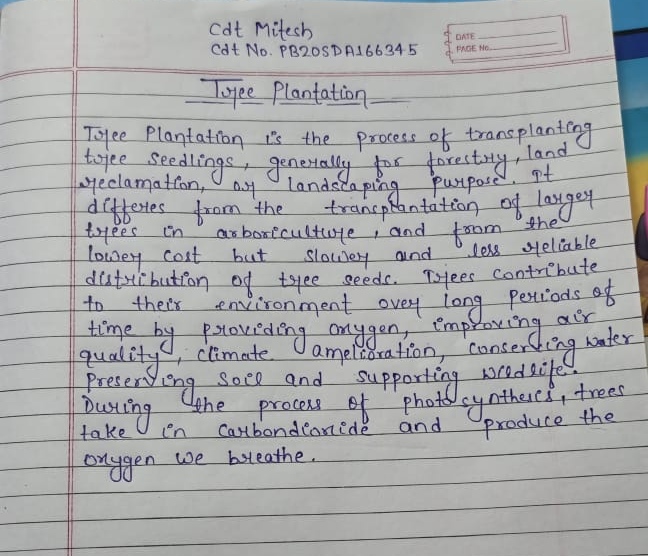 Cdt Mitesh
Cdt No. PB20SDA166345
DATE
PAGE No.
Tree Plantation
Tree Plantation is the process of transplanting
tree seedlings, generally for forestry, land
reclamation, or landscaping purpose. It
differes from the transplantation of larger
trees in arboriculture, and from the
lower cost but slower and less reliable
distribution of tree seeds. Trees contribute
to their environment over long periods of
time by providing oxygen, improving air
quality, climate amelioration, conserving water
preserving soil and supporting wildlife.
During the process of photosynthesis, trees
take in carbondioxide and produce the
oxygen we breathe.